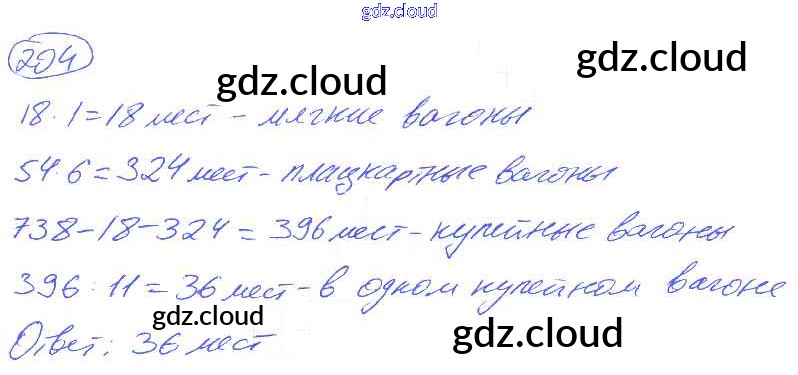 gdz.cloud
204
gdz.cloud
gdz.cloud
18·1=18 мест - мягкие вагоны
54·6=324 мест - плацкартные вагоны
738-18-324=396 мест - купейные вагоны
396:11=36 мест - в одном купейном вагоне
gdz.cloud
gdz.cloud
Ответ: 36 мест